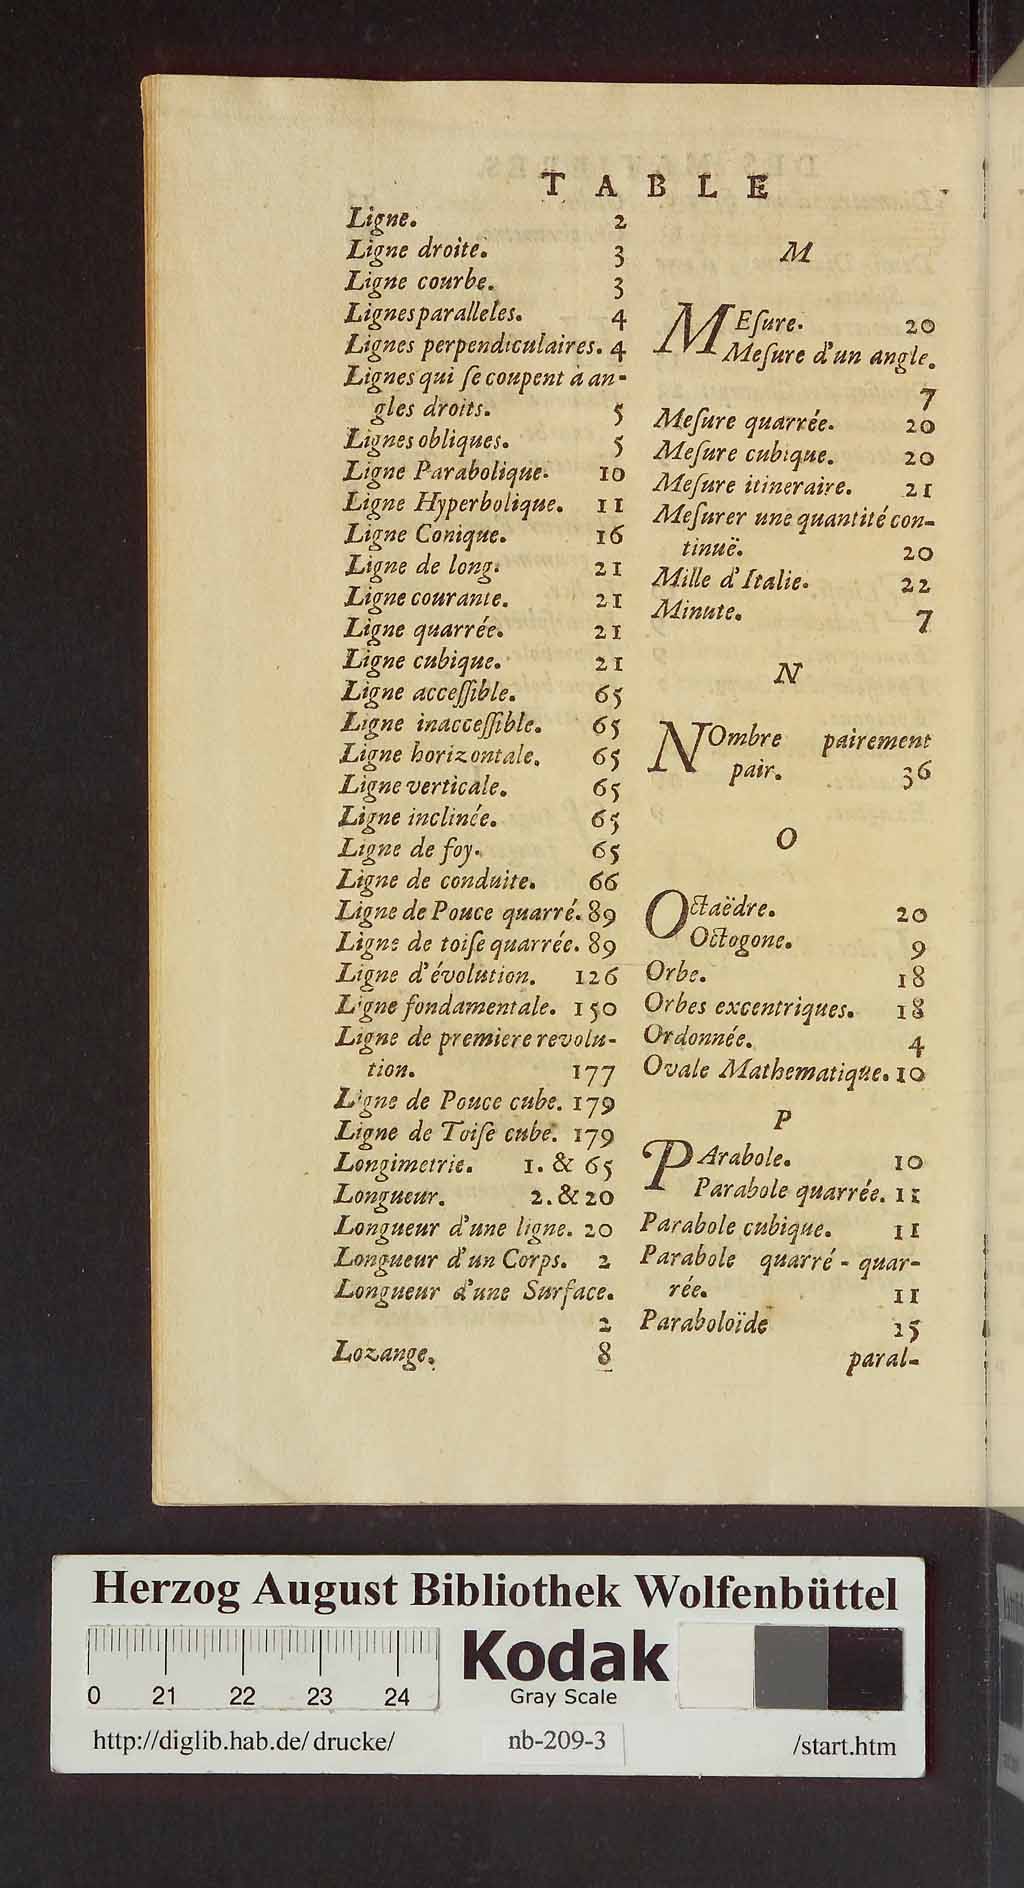 TABLE
Ligne. 2
Ligne droite. 3
Ligne courbe. 3
Lignes paralleles. 4
Lignes perpendiculaires. 4
Lignes qui ſe coupent à an-
gles droits. 5
Lignes obliques. 5
Ligne Parabolique. 10
Ligne Hyperbolique. 11
Ligne Conique. 16
Ligne de long. 21
Ligne courante. 21
Ligne quarrée. 21
Ligne cubique. 21
Ligne acceſſible. 65
Ligne inacceſſible. 65
Ligne horizontale. 65
Ligne verticale. 65
Ligne inclinée. 65
Ligne de foy. 65
Ligne de conduite. 66
Ligne de Pouce quarré. 89
Ligne de toiſe quarrée. 89
Ligne d'évolution. 126
Ligne fondamentale. 150
Ligne de premiere revolu-
tion. 177
Ligne de Pouce cube. 179
Ligne de Toiſe cube. 179
Longimetrie. 1. & 65
Longueur. 2. & 20
Longueur d'une ligne. 20
Longueur d'un Corps. 2
Longueur d'une Surface.
2
Lozange. 8
M
MEſure. 20
Meſure d'un angle.
7
Meſure quarrée. 20
Meſure cubique. 20
Meſure itineraire. 21
Meſurer une quantité con-
tinuë. 20
Mille d'Italie. 22
Minute. 7
N
NOmbre pairement
pair. 36
O
Octaëdre. 20
Octogone. 9
Orbe. 18
Orbes excentriques. 18
Ordonnée. 4
Ovale Mathematique. 10
P
PArabole. 10
Parabole quarrée. 11
Parabole cubique. 11
Parabole quarré-quar-
rée. 11
Paraboloïde 15
paral-
Herzog August Bibliothek Wolfenbüttel
0 21 22 23 24
Kodak
Gray Scale
http://diglib.hab.de/drucke/ nb-209-3 /start.htm